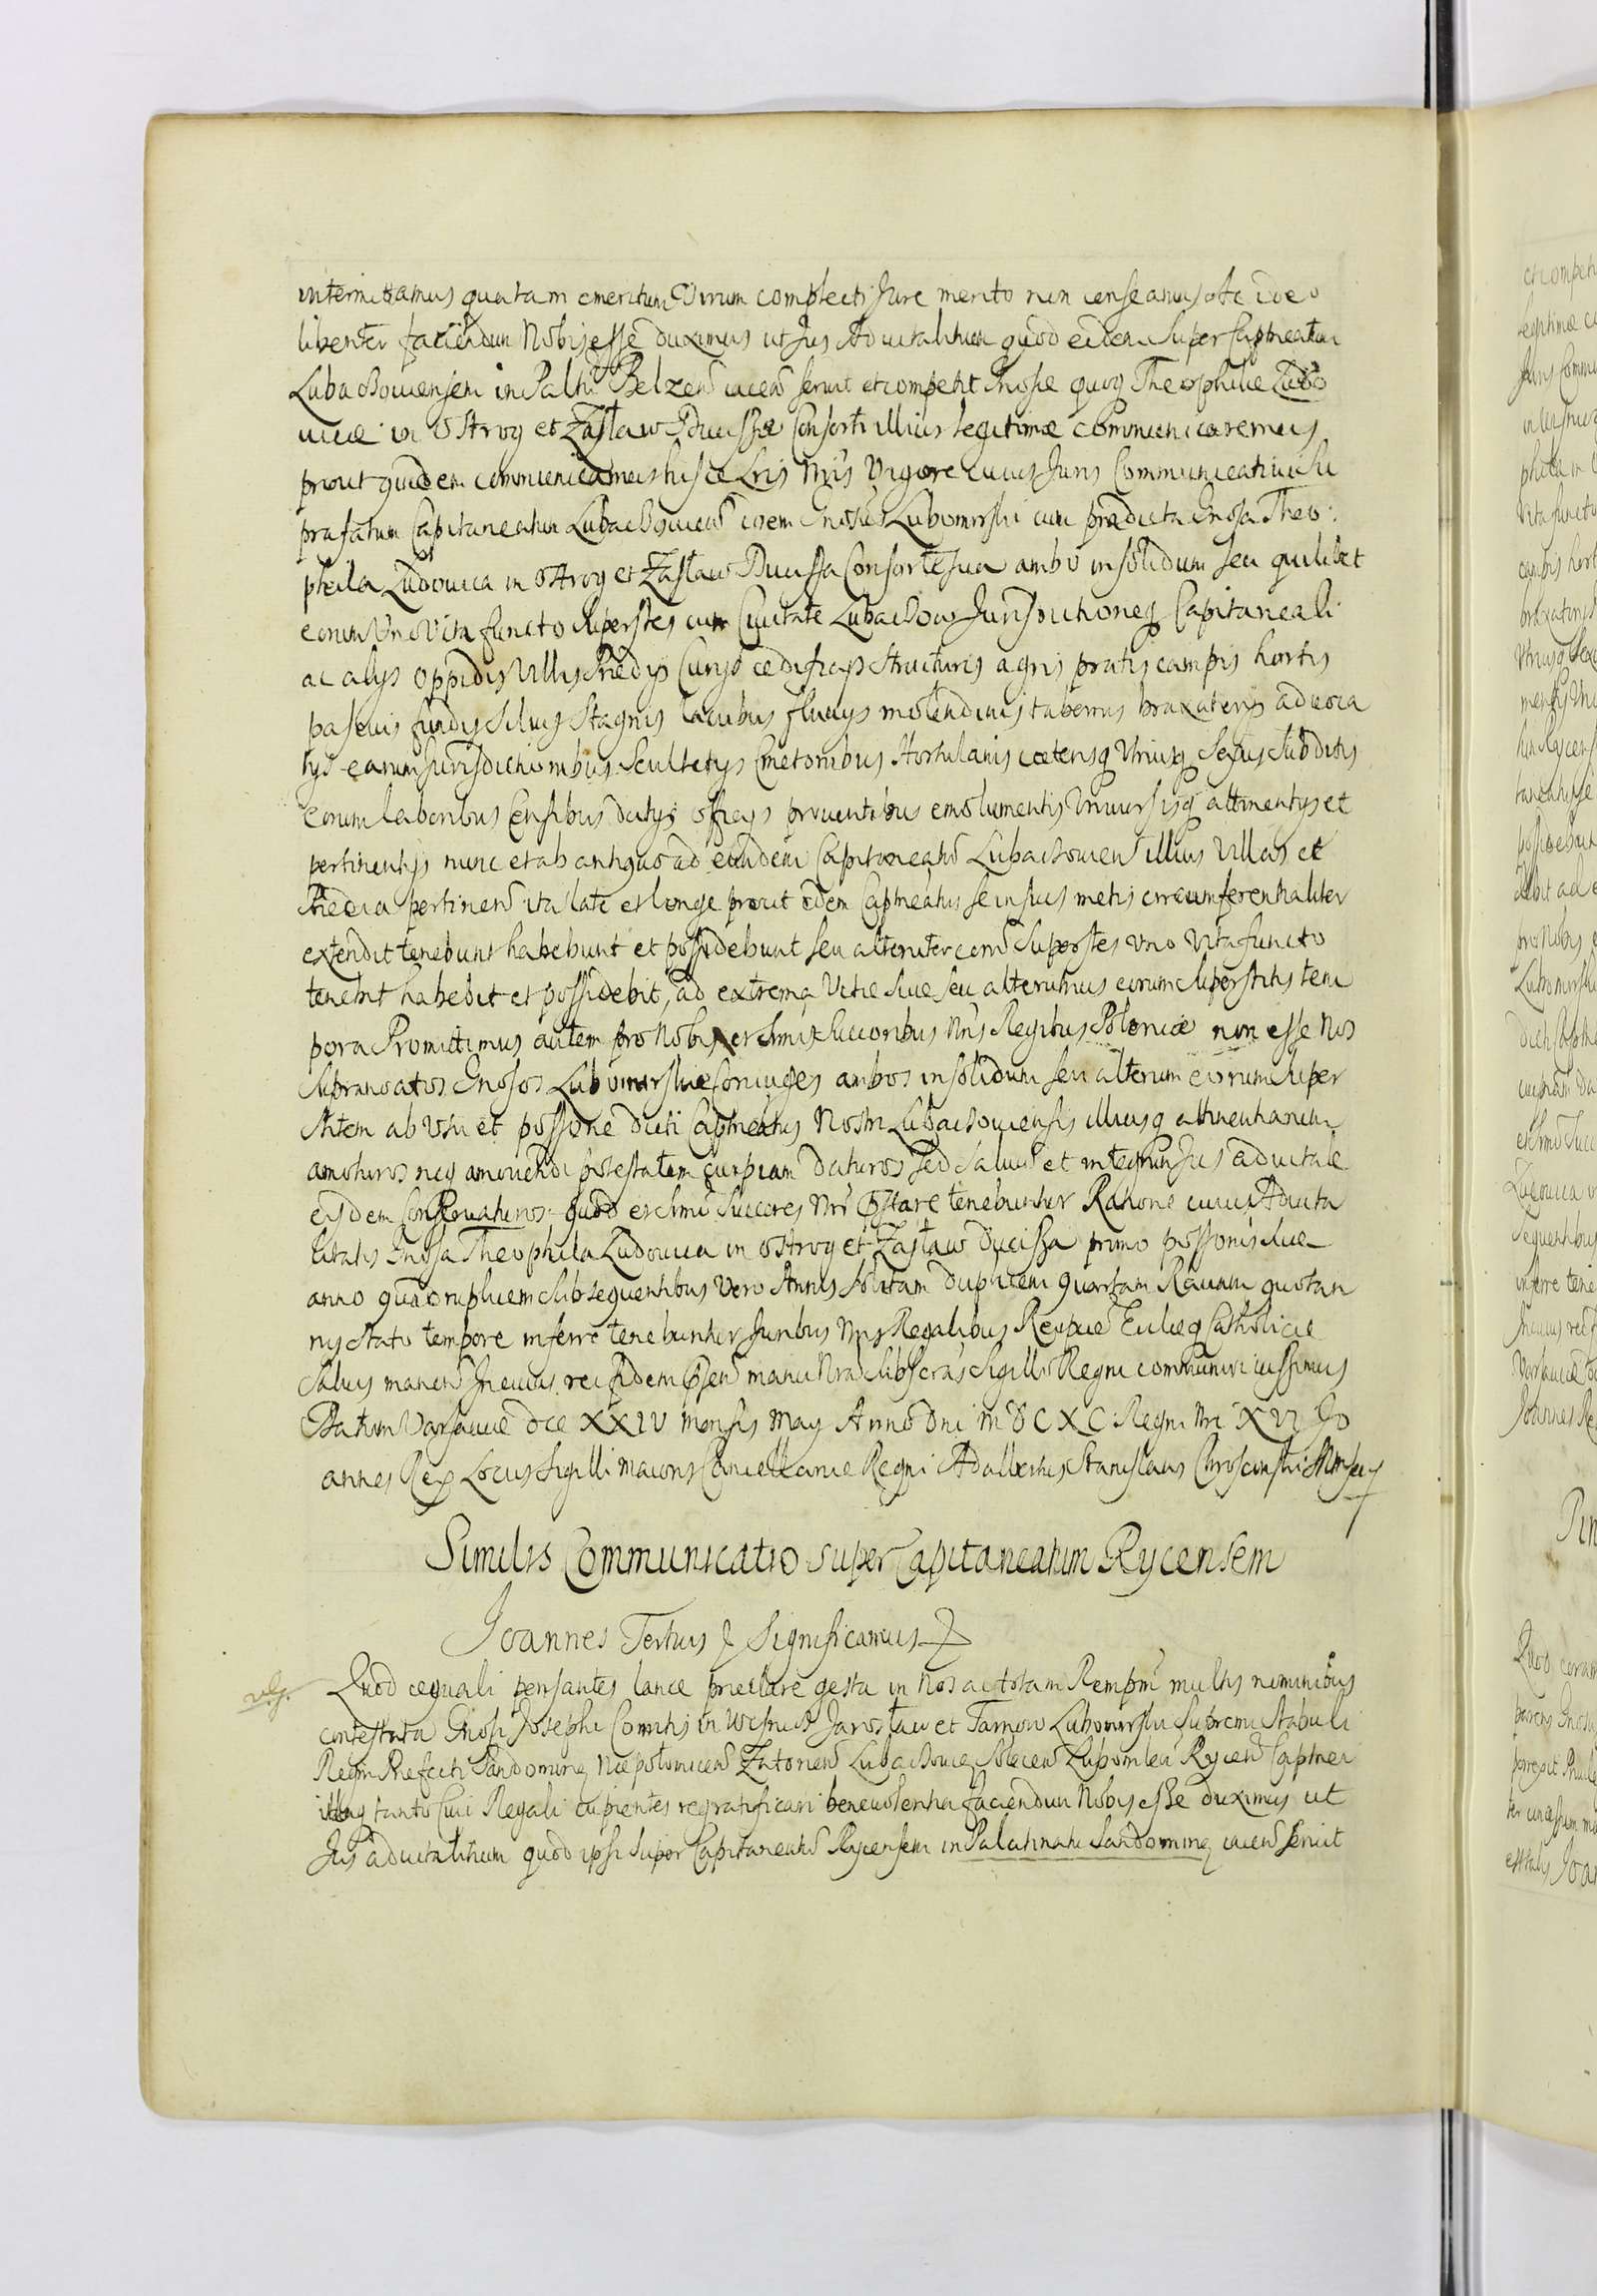 intermittamus qua tam emeritum Virum complecti Jure merito non censeamus ac ideo
libenter faciendum Nobis esse duximus ut Jus Advitalitium quod eidem super Captneatum
Lubaczoviensem in Paltu Belzen iacen servit et competit Gnosae quoq Theophilae Ludo
vicae in Ostrog et Zasław Ducissae Consorti illius legitimae communicaremus
prout quidem communicamus hisce Lris Nris Vigore cuius Juris Communicativi su
prafatum Capitaneatum Lubaczovien idem Gnosus Lubomirski cum praedicta Gnosa Theo
phila Ludovica in Ostrog et Zasław Ducissa Consorte sua ambo insolidum seu quilibet
eorum Uno Vita functo superstes cum Civitate Lubaczow Jurisdictioneq Capitaneali
ac alijs Oppidis Villis Praedijs Curijs aedificijs structuris agris pratis campis hortis
pascuis fundis Silvis Stagnis lacubus fluvijs molendinis tabernis braxatorijs advoca
tijs earum Jurisdictionibus Scultetijs Cmetonibus Hortulanis caeterisq Utriusq Sexus Subditis
eorum laboribus Censibus datijs officijs proventibus emolumentis Universisq attinentijs et
pertinentijs nunc et ab antiquo ad eundem Capitaneatum Lubaczovien illius Villas et
Praedia pertinen ita late et longe prout idem Captneatus se in suis metis circumferentialiter
extendit tenebunt habebunt et possidebunt seu alteruter eorum Superstes uno vita functo
tenebit habebit et possidebit, ad extrema Vitae suae seu alterutrius eorum Superstitis tem
pora Promittimus autem pro Nobis et Smis Succoribus Nris Regibus Poloniae non esse Nos
Supranoatos Gnosos Lubomirskie Coniuges ambos insolidum seu alterum eorum Super
stitem ab Usu et possone dicti Captneatus Nostri Lubaczoviensis illiusq attinentiarum
amoturos neq amovendi potestatem cuipiam daturos sed salvum et integrum Jus advitale
eisdem Conservaturos quod et Smi Succores Nri pstare tenebuntur Ratione cuius Advita
litatis Gnosa Theophila Ludovica in Ostrog et Zasław Ducissa primo possonis suae
anno quadruplicem Subsequentibus vero Annis solitam duplicem quartam Ravam quotan
nis stato tempore inferre tenebuntur Juribus Nris Regalibus Reipcae Eccliaeq Catholicae
Salvis manen In cuius rei fidem psen manu Nra Subscras Sigillo Regni communiri iussimus
Datum Varsaviae die XXIV Mensis May Anno Dni MDCXC Regni Nri XVI Jo
annes Rex Locus Sigilli maioris Cancellariae Regni Adalbertus Stanislaus Chroscinski
Similis Communicatio super Capitaneatum Rycensem
Joannes Tertius Significamus
Quod aequali pensantes lance praeclare gesta in Nos ac totam Rempm multis nominibus
contestata Gnosi Josephi Comitis in Wisnicz Jarosław et Tarnow Lubomirski Supremi Stabuli
Regni Praefecti Sandomirien Niepołomicen Zatorien Lubaczovien Solecen Lubomlen Rycen Captnei
tanto Civi Regali cupientes regratificari benevolentia faciendum Nobis esse duximus ut
Jus advitalitium quod ipsi super Capitaneatu Rycensem in Palatinatu Sandomirien iacen servit